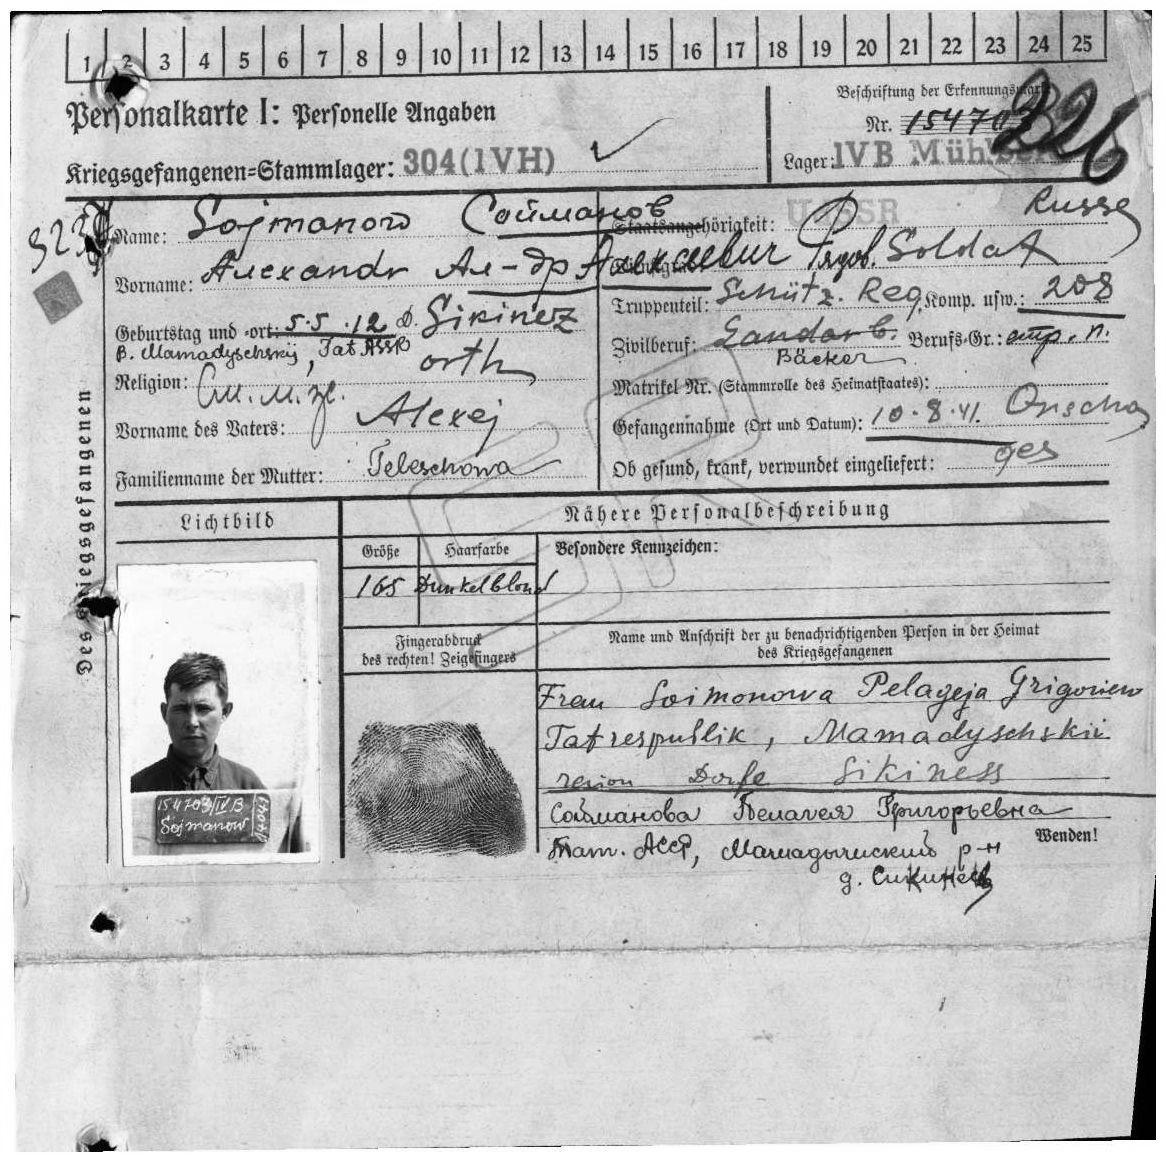 1 2 3 4 5 6 7 8 9 10 11 12 13 14 15 16 17 18 19 20 21 22 23 24 25
Personalkarte I: Personelle Angaben
Beschriftung der Erkennungsmarke
Nr. 154703
226
Kriegsgefangenen-Stammlager: 304(IVH)
Lager: IVB Mühlberg
Des Kriegsgefangenen
Name: Sojmanow Сойманов
Staatsangehörigkeit: UdSSR Russe
Vorname: Alexandr Ал-др Алексеевич
Dienstgrad: Soldat
Geburtstag und -ort: 5.5.12 D. Sikinez
B. Mamadyschskij, Tat ASSR
Truppenteil: Schütz. Reg. Komp. usw.: 208
Zivilberuf: Berufs-Gr.:
Bäcker
Religion: orth
Matrikel Nr. (Stammrolle des Heimatstaates):
Vorname des Vaters: Alexej
Gefangennahme (Ort und Datum): 10.8.41. Orscha
Familienname der Mutter: Teleschowa
Ob gesund, krank, verwundet eingeliefert: ges
Lichtbild
Nähere Personalbeschreibung
Größe Haarfarbe Besondere Kennzeichen:
165 Dunkelblond
Fingerabdruck
des rechten! Zeigefingers
Name und Anschrift der zu benachrichtigenden Person in der Heimat
des Kriegsgefangenen
Frau Soimonowa Pelageja Grigoriew
Tatrespublik, Mamadyschskii
reion Dorfe Sikiness
Сойманова Пелагея Григорьевна
Тат. АССР, Мамадышский р-н
д. Сикинесь
Wenden!
154703/IVB
Sojmanow